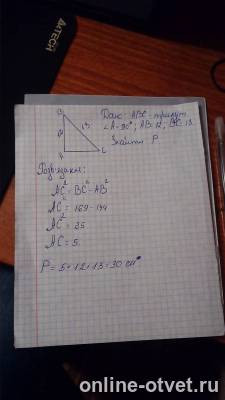 ACTECH
B
Дано: ABC - трикут
12
13
∠A=90°; AB=12; BC=13
A
C
Знайти P
Розв'язання:
AC² = BC² - AB²
AC² = 169 - 144
AC² = 25
AC = 5.
P = 5 + 12 + 13 = 30 см
online-otvet.ru